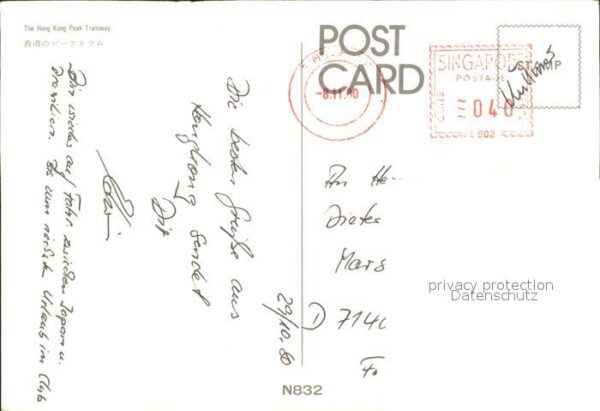 The Hong Kong Peak Tramway
香港のピークトラム
POST
CARD
SINGAPORE
POSTAGE
CENTS
040
902
STAMP
-8.11.80
Die besten Grüße aus
Hongkong sendet
Dir
Edwin
Bin wieder auf Fahrt zwischen Japan u.
Brasilien. Bis zum nächsten Urlaub im Club
29/10.80
An He
Dieter
Mars
D 714
privacy protection
Datenschutz
N832